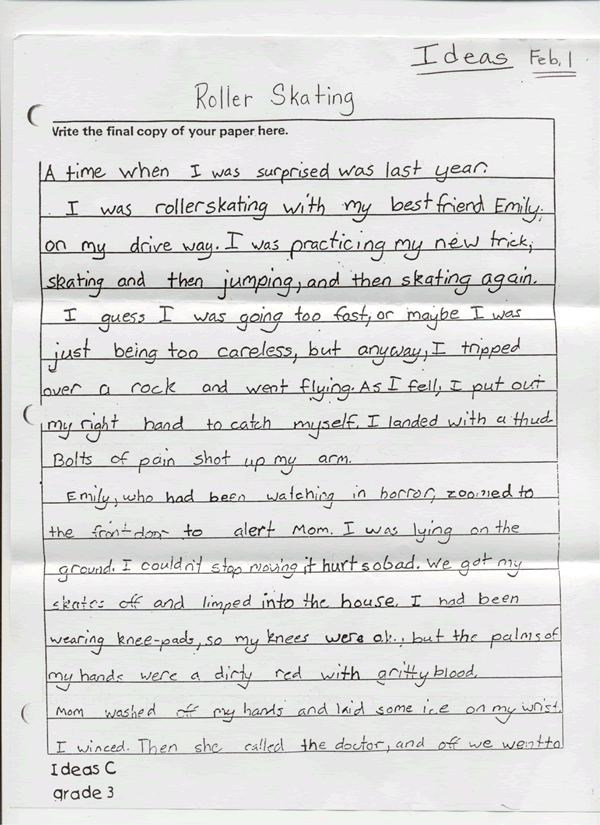 Ideas Feb. 1
Roller Skating
Write the final copy of your paper here.
A time when I was surprised was last year.
I was rollerskating with my best friend Emily,
on my drive way. I was practicing my new trick,
skating and then jumping, and then skating again.
I guess I was going too fast, or maybe I was
just being too careless, but anyway, I tripped
over a rock and went flying. As I fell, I put out
my right hand to catch myself. I landed with a thud.
Bolts of pain shot up my arm.
Emily, who had been watching in horror, zoomed to
the front door to alert Mom. I was lying on the
ground. I couldn't stop moving it hurt so bad. We got my
skates off and limped into the house. I had been
wearing knee-pads, so my knees were ok., but the palms of
my hands were a dirty red with gritty blood.
Mom washed off my hands and laid some ice on my wrist.
I winced. Then she called the doctor, and off we went to
Ideas C
grade 3